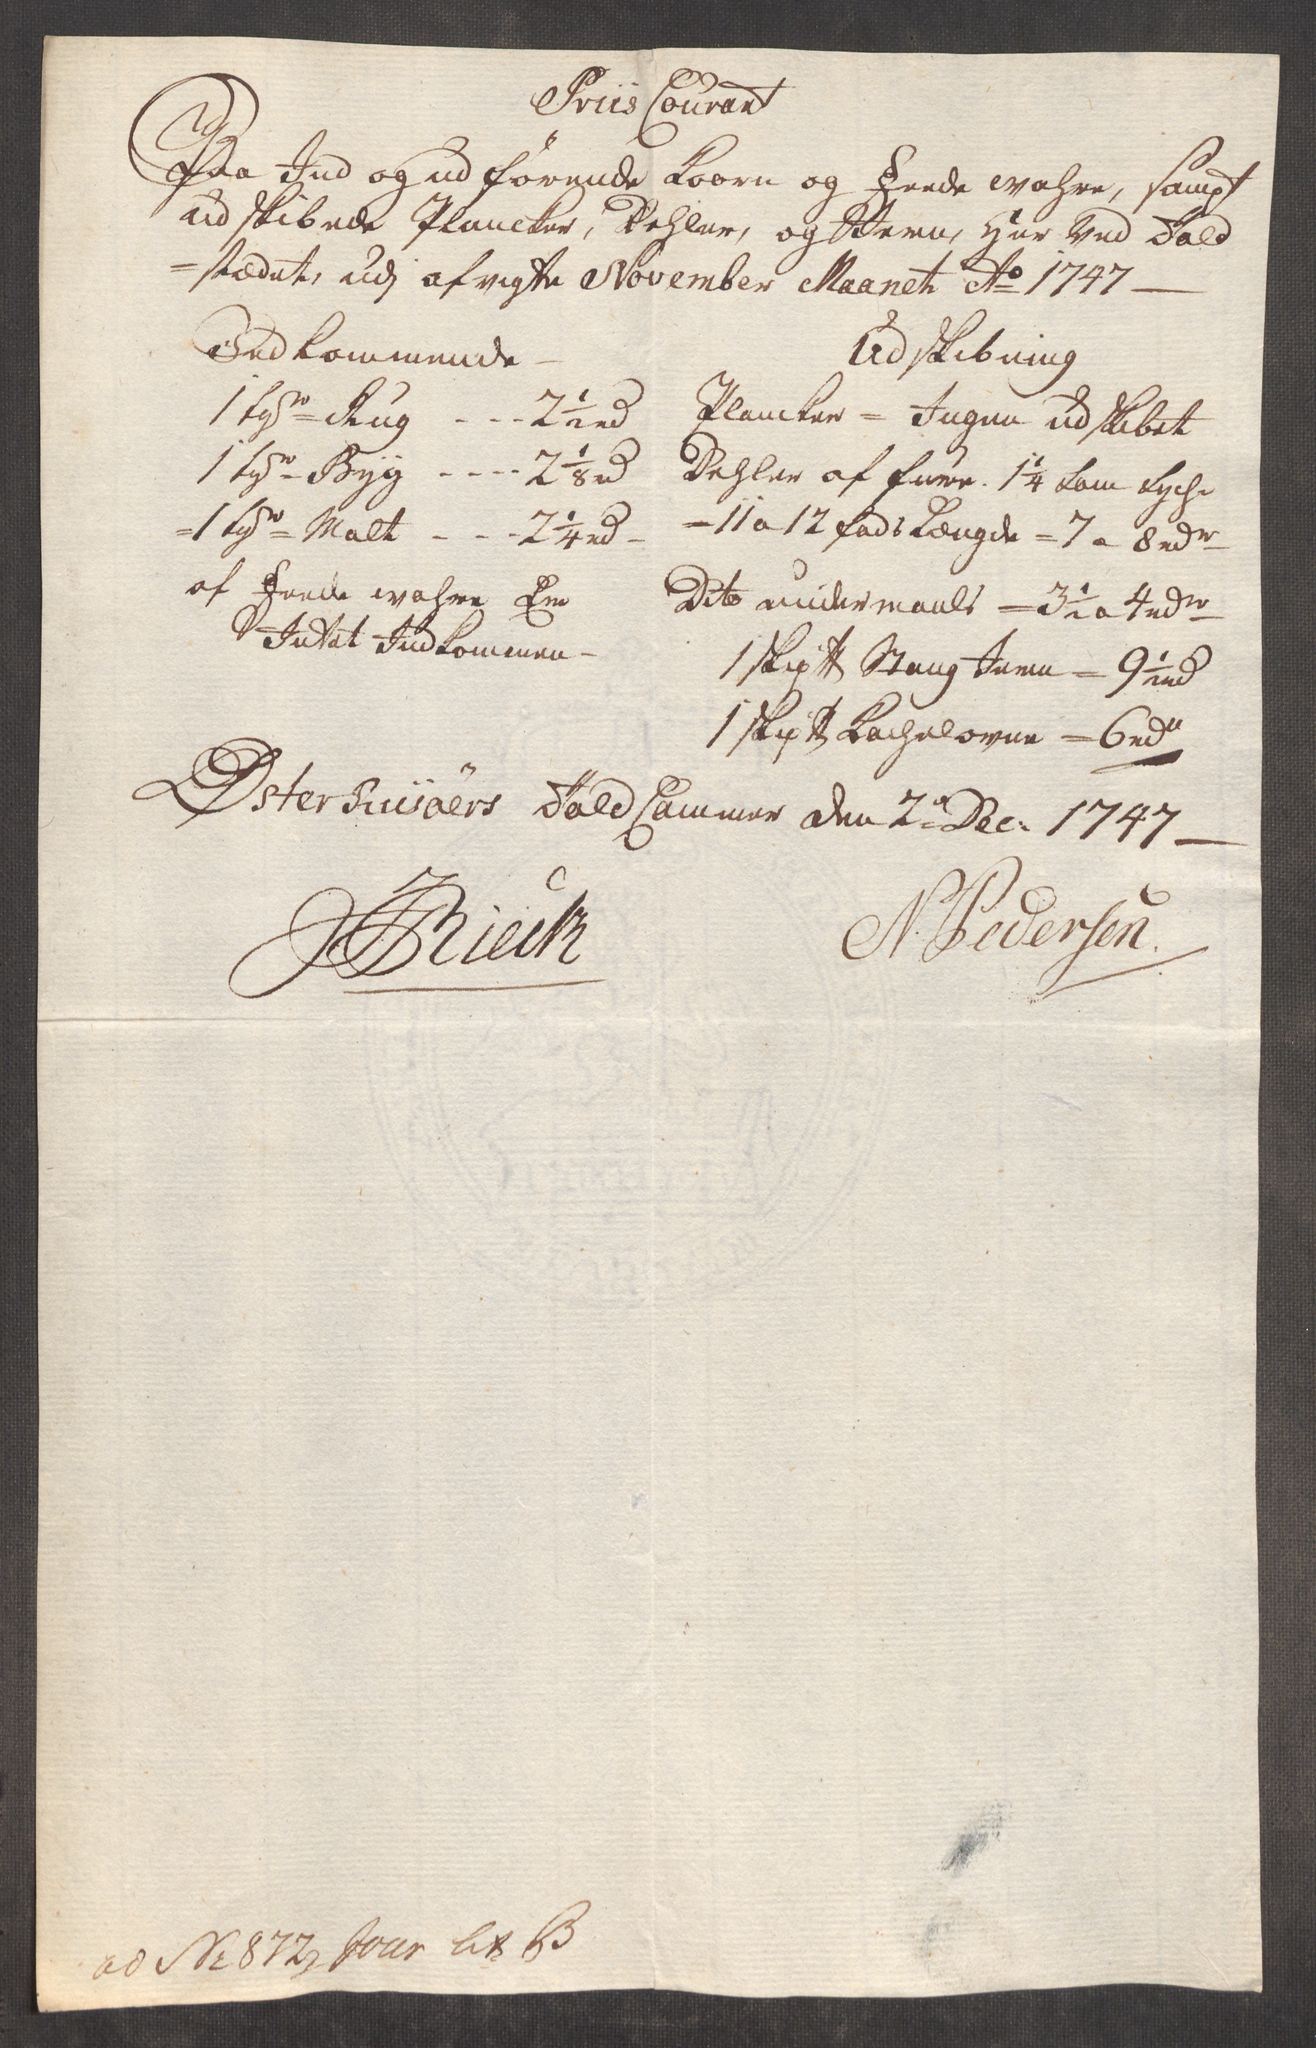 Priis Courant
Paa Ind og udførende Koorn og feede wahre, sampt
udskibede Plancker, Dehler, og Jern, her ved Told
=stædet, udj afvigte November Maanet Ao 1747 —
Indkommende —
1 tyn= Rug - - - 2 1/2 rd
1 tyn= Byg - - - - 2 1/8 rd
=1 tyn= Malt - - - 2 1/4 rd -
af feede wahre Er
Intet Indkommen -
Udskibning
Plancker = Ingen udskibet
Dehler af furre 1 1/4 tom tych
= 11 a 12 fods Længde = 7 a 8 rdr
Dito undermaals = 3 1/2 a 4 rdr
1 skip℔ Stang Jern = 9 1/2 rd
1 skip℔ Kachelovne = 6 rdr
Østerriisöers Told Cammer den 2 Dec: 1747 —
Rieck
N. Pedersen.
ad No 872 Jour Lit B